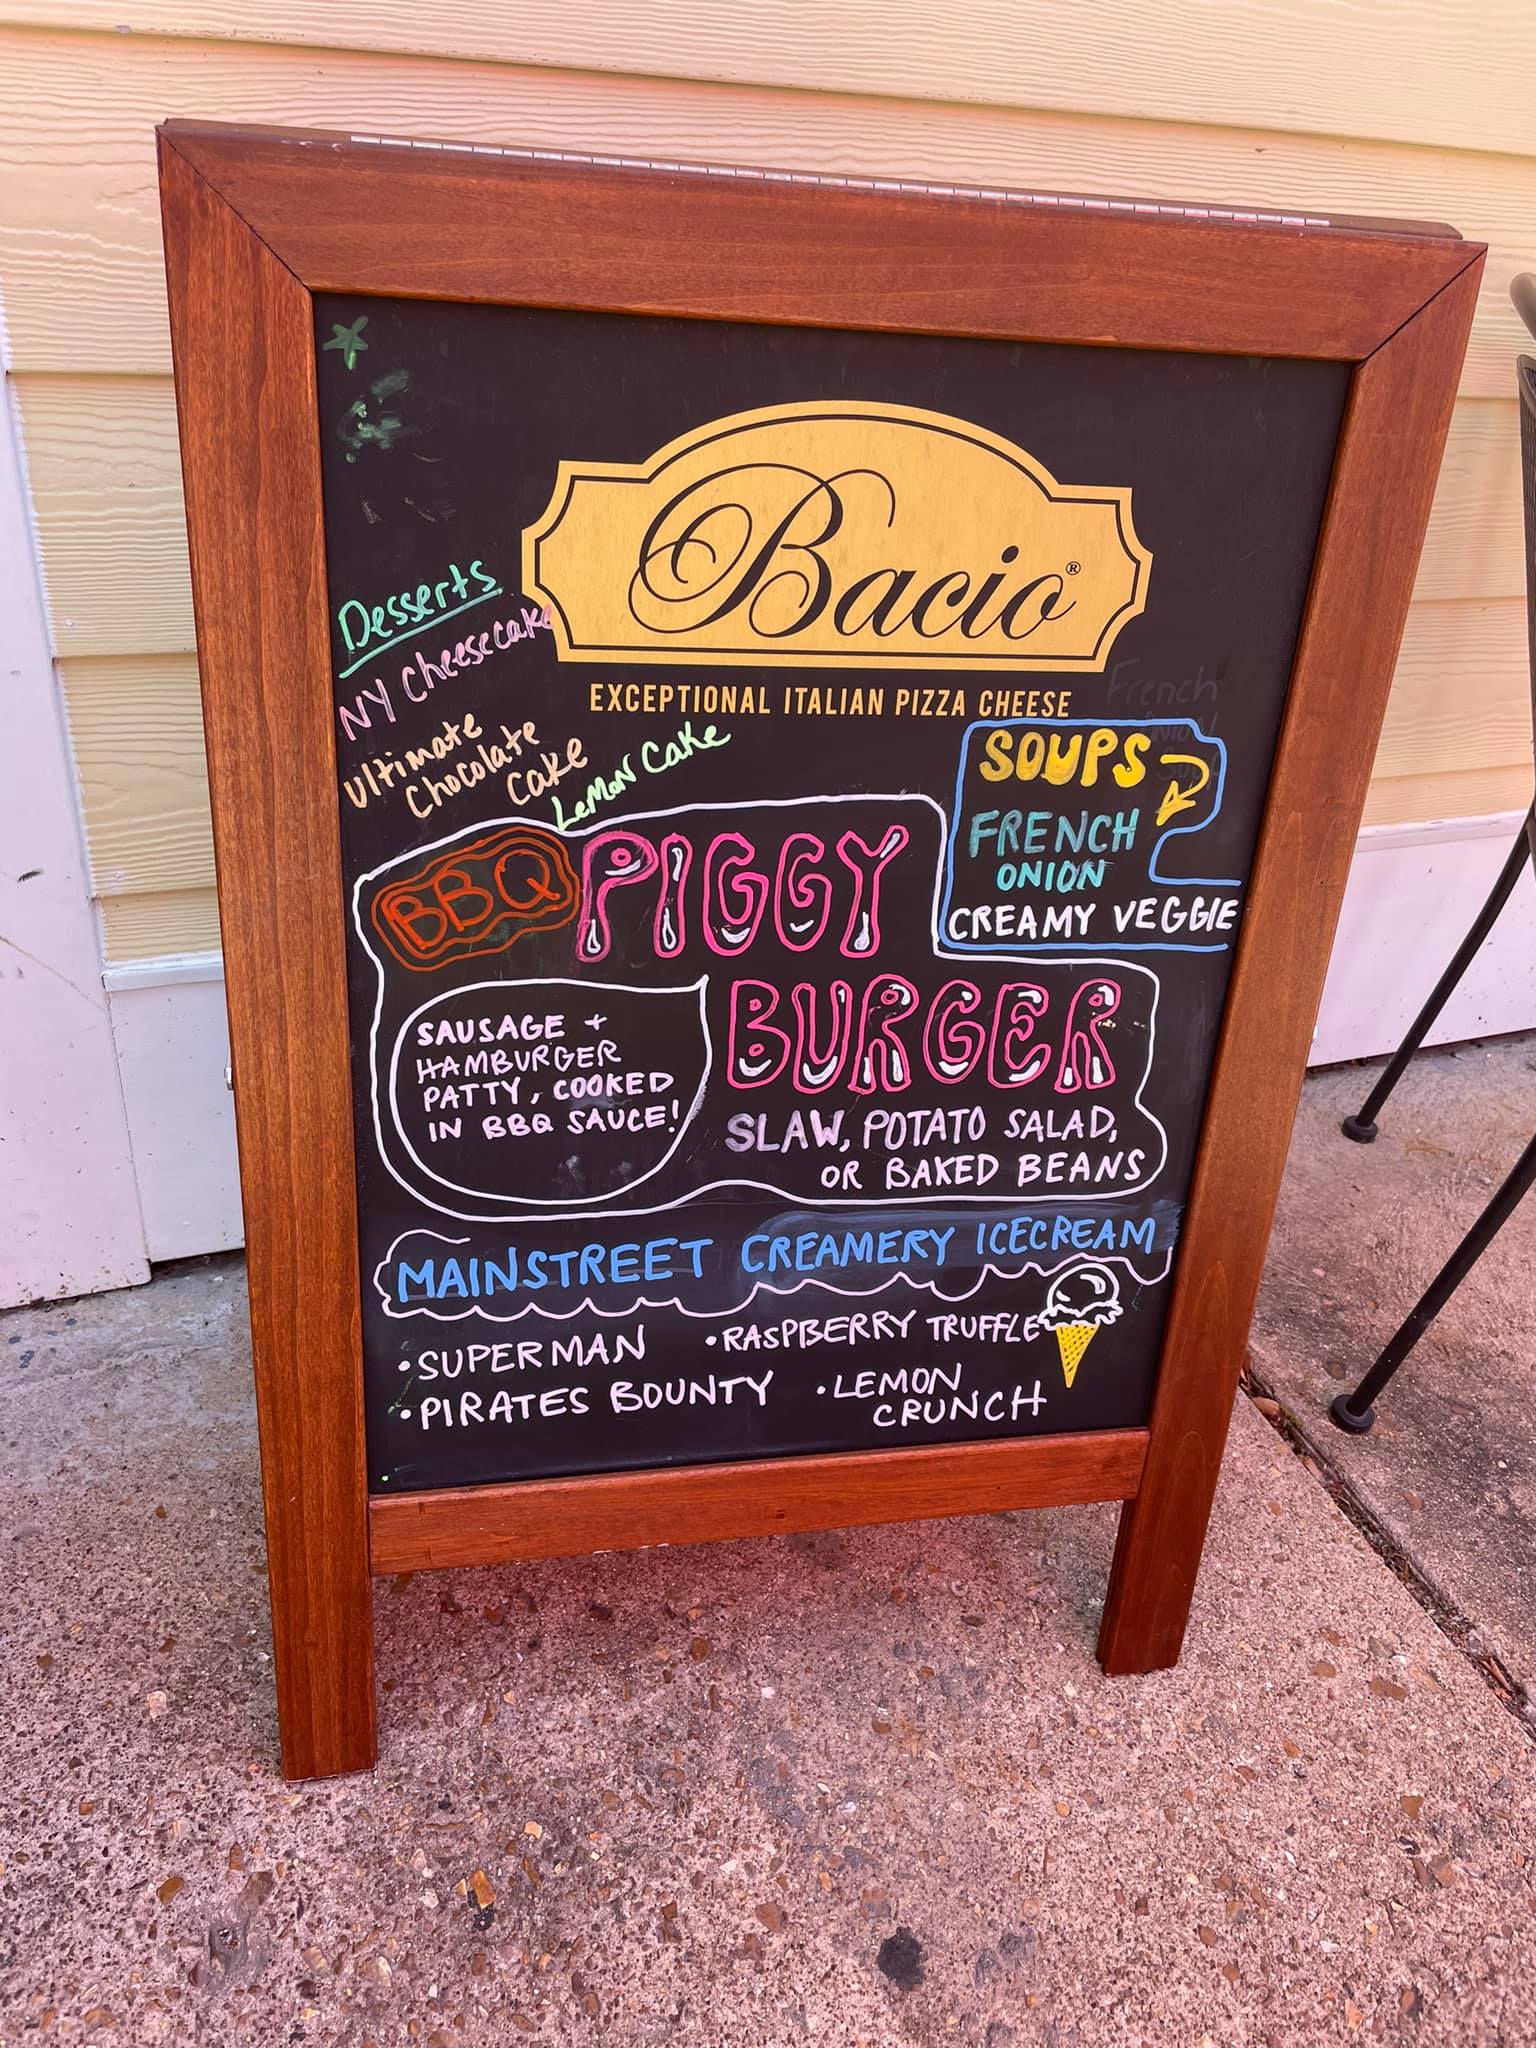 Bacio®
EXCEPTIONAL ITALIAN PIZZA CHEESE
Desserts
NY Cheesecake
Ultimate
Chocolate
Cake
Lemon Cake
French
Onion
Soup
SOUPS
FRENCH
ONION
CREAMY VEGGIE
BBQ PIGGY
BURGER
SAUSAGE +
HAMBURGER
PATTY, COOKED
IN BBQ SAUCE!
SLAW, POTATO SALAD,
OR BAKED BEANS
MAINSTREET CREAMERY ICECREAM
• SUPERMAN
• RASPBERRY TRUFFLE
• PIRATES BOUNTY
• LEMON
CRUNCH